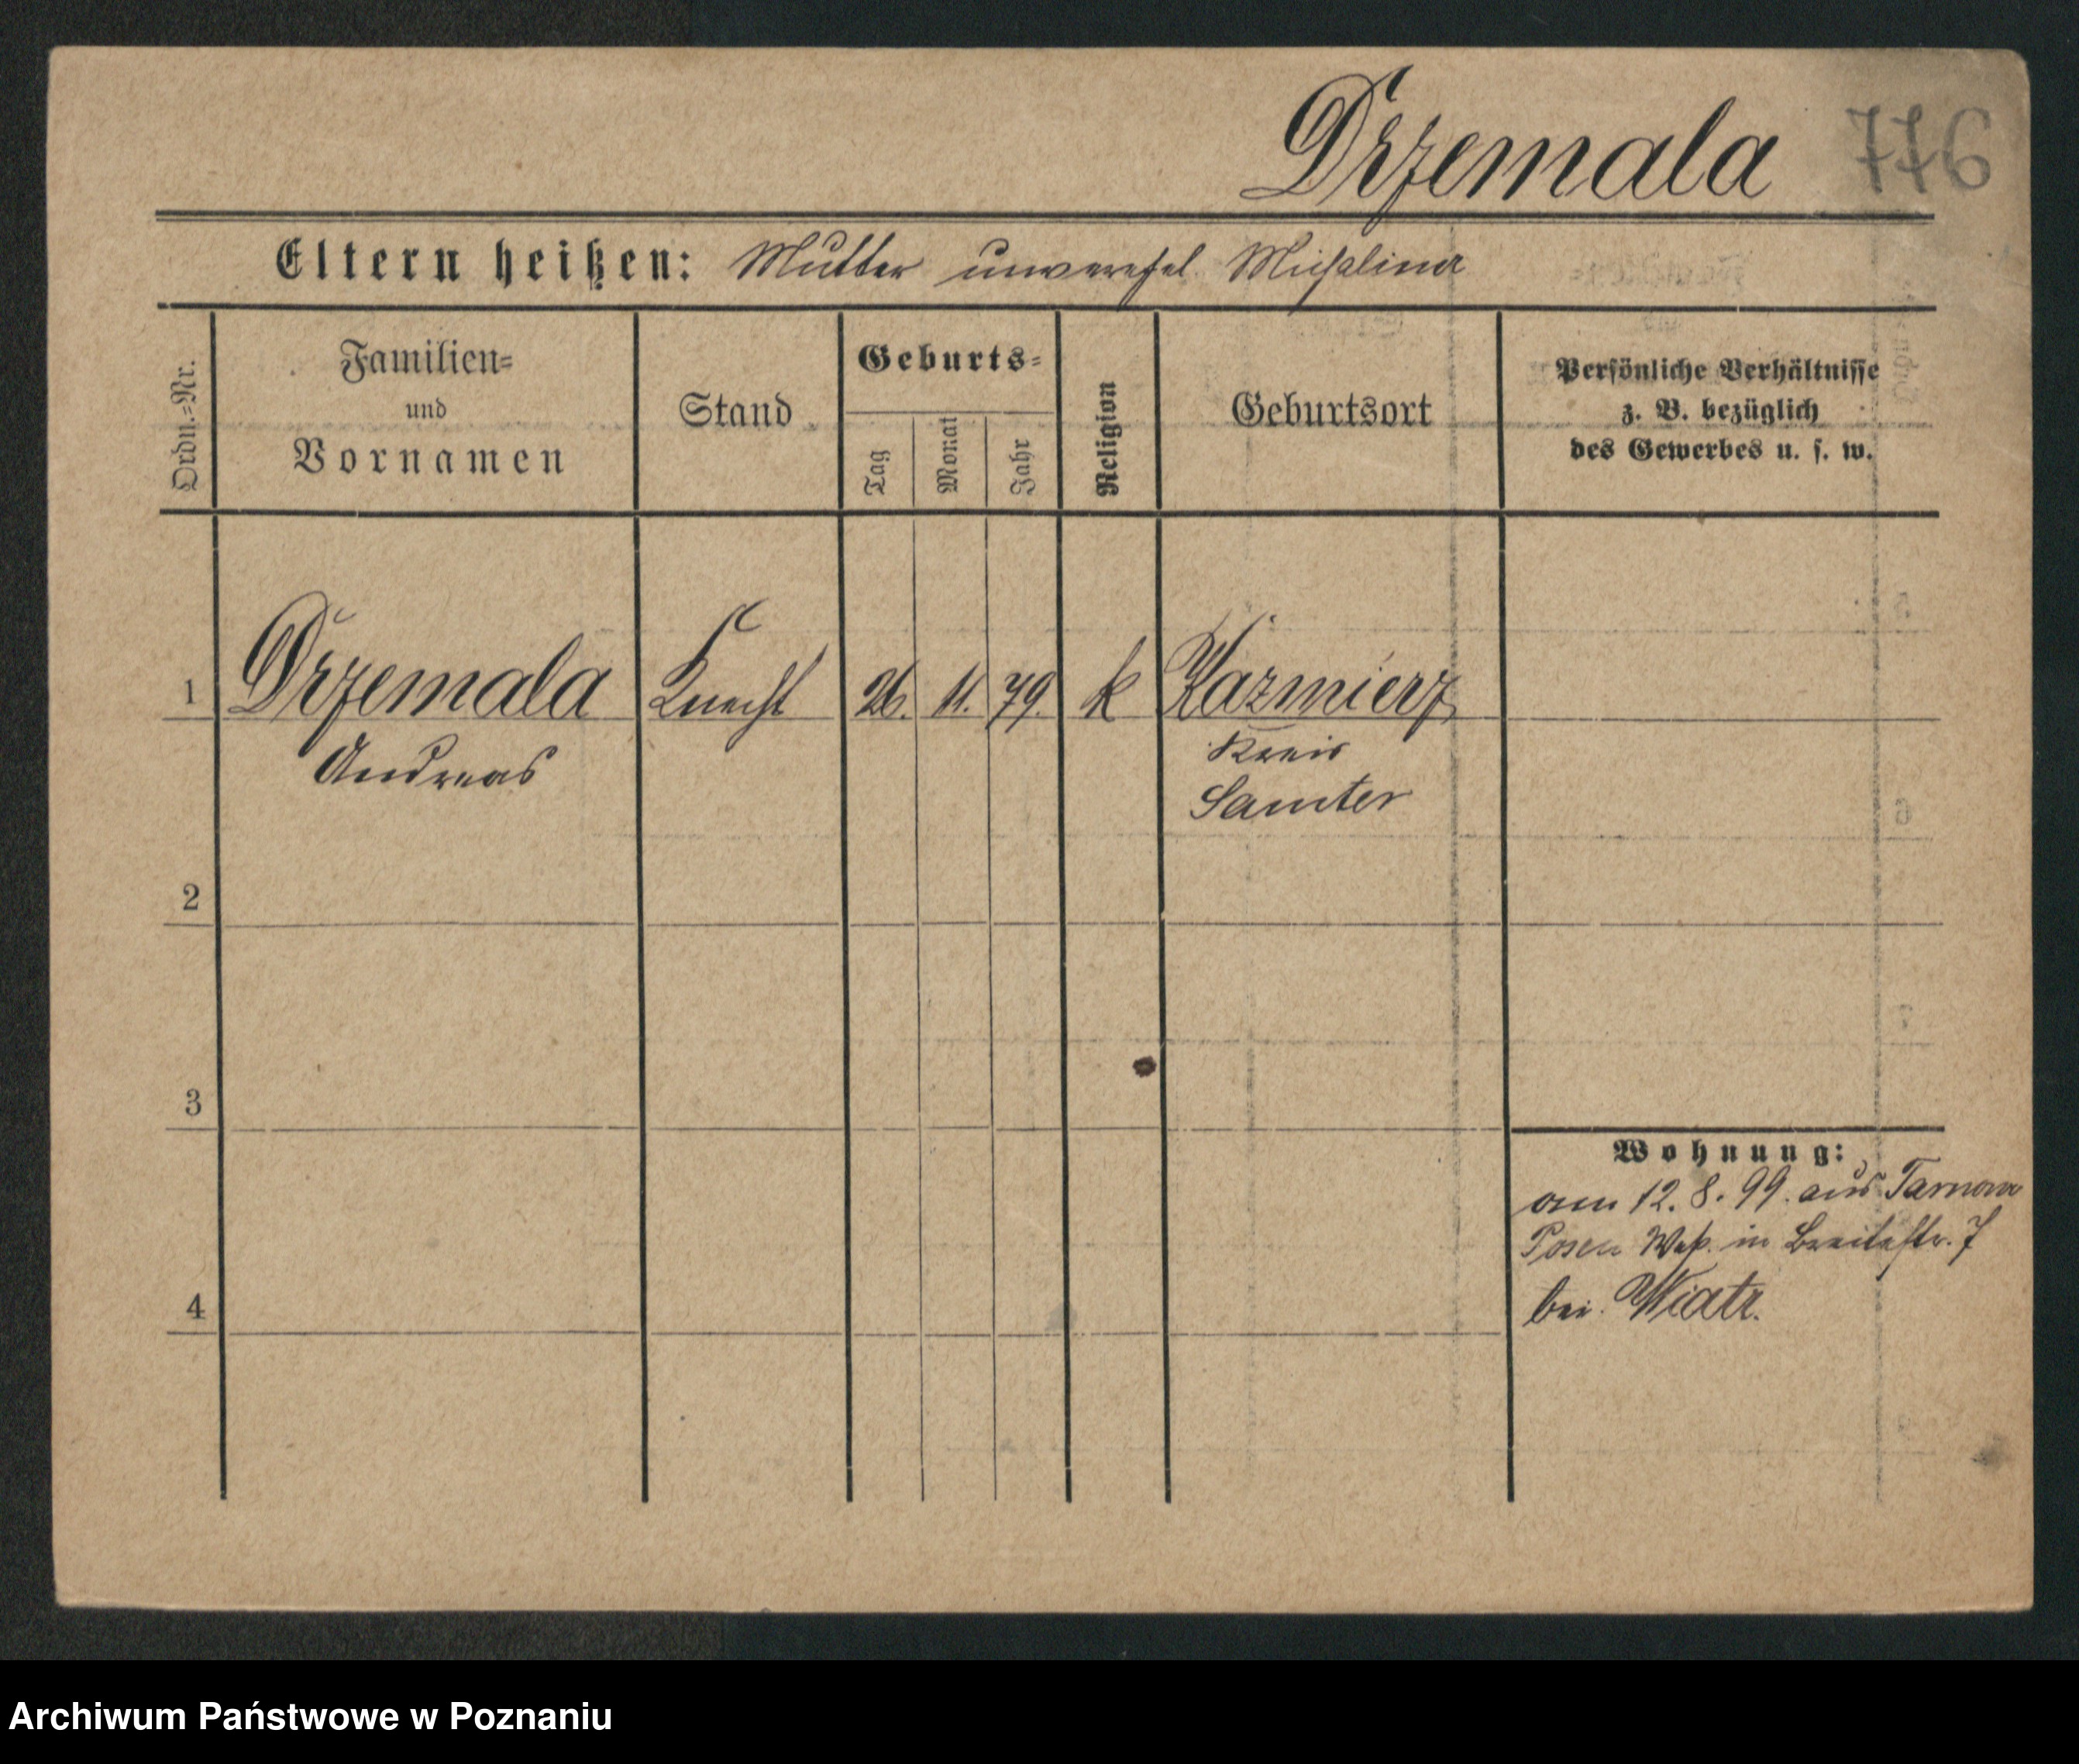 Drzemala 776
Eltern heißen: Mutter unverehel. Michalina
Ordn.-Nr.
Familien-
und
Vornamen
Stand
Geburts-
Tag
Monat
Jahr
Religion
Geburtsort
Persönliche Verhältnisse
z. B. bezüglich
des Gewerbes u. s. w.
1 Drzemala Knecht 26. 11. 79. k Kazmierz
Andreas
Kreis
Samter
2
3
4
Wohnung:
am 12. 8. 99. aus Tarnowo
Posen W. in Breitestr. 7
bei Wiatr.
Archiwum Państwowe w Poznaniu